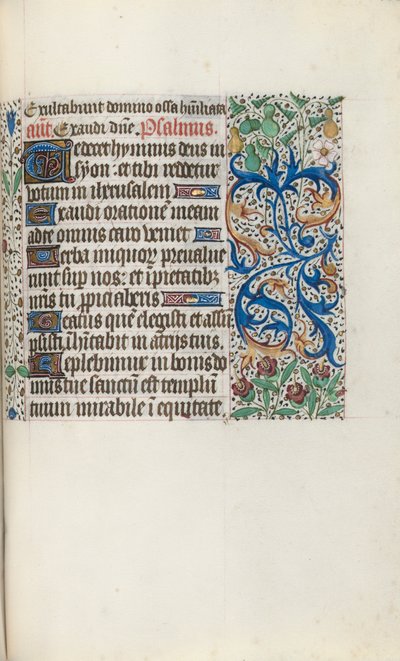 Exultabunt domino ossa hũiliata
añt Exaudi dñe. Psalmus.
Te decet hymnus deus in
syon: et tibi reddetur
votum in iherusalem
Exaudi orationem meam
ad te omnis caro veniet
Verba iniquor̃ prevalue
runt sup nos: et ipietatib
nr̃is tu ppiciaberis
Beatus quẽ elegisti et assũ
psisti ihitabit in atriis tuis.
Replebimur in bonis do
mus tue sanctum est templũ
tuum mirabile ĩ equitate